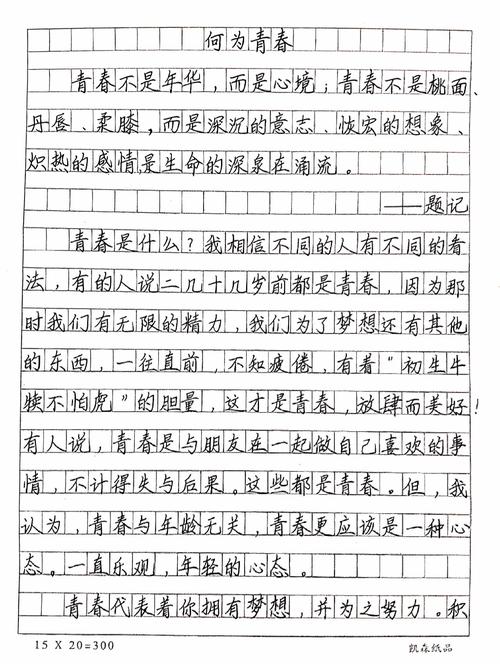 何为青春
青春不是年华，而是心境；青春不是桃面、
丹唇、柔膝，而是深沉的意志、恢宏的想象、
炽热的感情,是生命的深泉在涌流。
——题记
青春是什么？我相信不同的人有不同的看
法，有的人说二几十几岁前都是青春，因为那
时我们有无限的精力，我们为了梦想还有其他
的东西，一往直前，不知疲倦，有着"初生牛
犊不怕虎"的胆量，这才是青春，放肆而美好！
有人说，青春是与朋友在一起做自己喜欢的事
情，不计得失与后果。这些都是青春。但，我
认为，青春与年龄无关，青春更应该是一种心
态。一直乐观，年轻的心态。
青春代表着你拥有梦想，并为之努力。积
15 X 20=300
凯森纸品